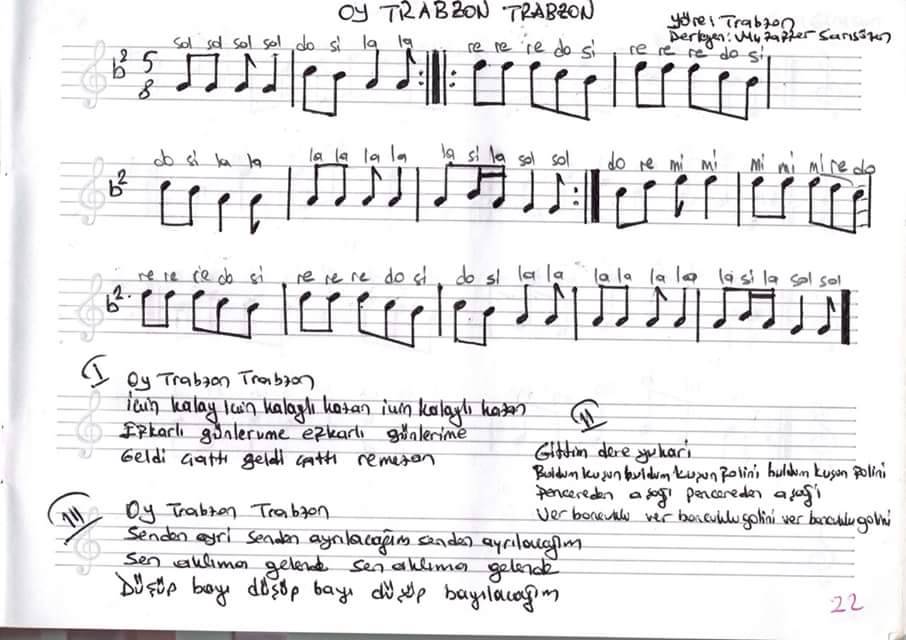 OY TRABZON TRABZON
Yöre: Trabzon
Derleyen: Muzaffer Sarısözen
sol sol sol sol do si la la re re re do si re re re do si
b2 5
8
do si la la la la la la la si la sol sol do re mi mi mi mi mi re do
b2
re re re do si re re re do si do si la la la la la la la si la sol sol
b2
I
Oy Trabzon Trabzon
icin kalay icin kalaylı kazan icin kalaylı kazan
Efkarlı günlerume efkarlı günlerime
Geldi çattı geldi çattı remezan
II
Gittim dere yukari
Buldum kuşun buldum kuşun folini buldum kuşun folini
Pencereden aşaği pencereden aşaği
Ver boncuklu ver boncuklu golini ver boncuklu golini
III
Oy Trabzon Trabzon
Senden ayri senden ayrılacağım senden ayrılacağım
Sen aklıma gelende sen aklıma gelende
Düşüp bayı düşüp bayı düşüp bayılacağım
22